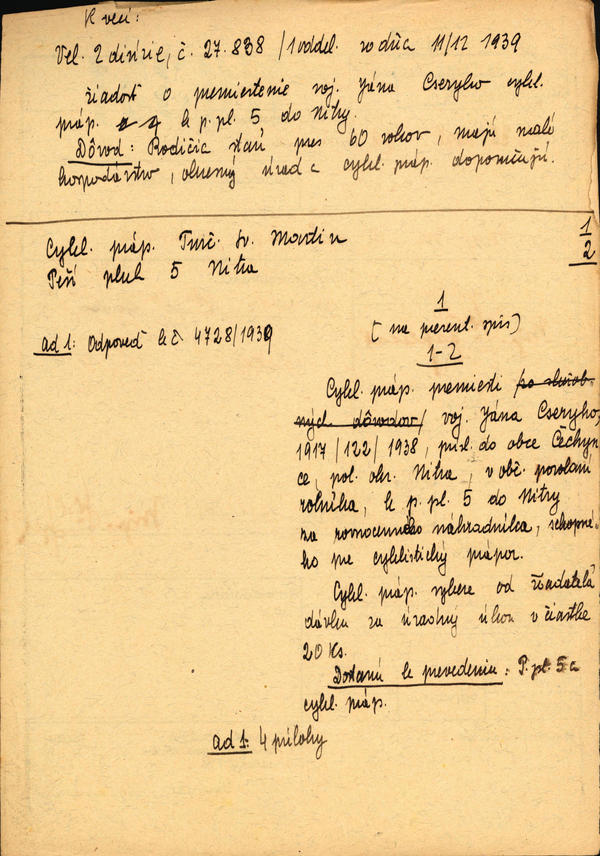 K veci:
Vel. 2 divízie, č. 27.838 /1 oddel. zo dňa 11/12 1939
žiadosť o premiestenie voj. Jána Cseryho cykl.
práp. k p. pl. 5 do Nitry.
Dôvod: Rodičia starí pres 60 rokov, majú malé
hospodárstvo, obecný úrad a cykl. práp. doporučujú.
Cykl. práp. Turč. Sv. Martin
Peší pluk 5 Nitra
1
2
1
(na prezent. spis)
1-2
ad 1: Odpoveď k č. 4728/1939
Cykl. práp. premiesti /zo služob-
ných dôvodov/ voj. Jána Cseryho,
1917/122/1938, prísl. do obce Čechyn-
ce, pol. okr. Nitra, v obč. povolaní
roľníka, k p. pl. 5 do Nitry
za rovnocenného náhradníka, schopné-
ho pre cyklistický prápor.
Cykl. práp. vybere od žiadateľa
dávku za úradný úkon v čiastke
20 Ks.
Dostanú k prevedeniu: P. pl. 5 a
cykl. práp.
ad 1: 4 prílohy